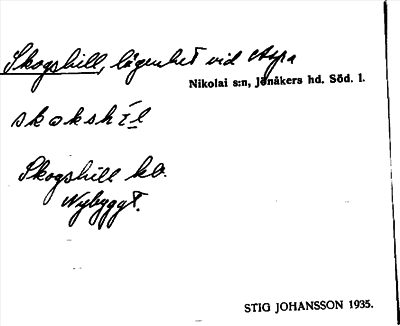 Skogshill, lägenhet vid Aspa
Nikolai s:n, Jönåkers hd. Söd. l.
skokshíl
Skogshill kb.
Nybyggt.
STIG JOHANSSON 1935.